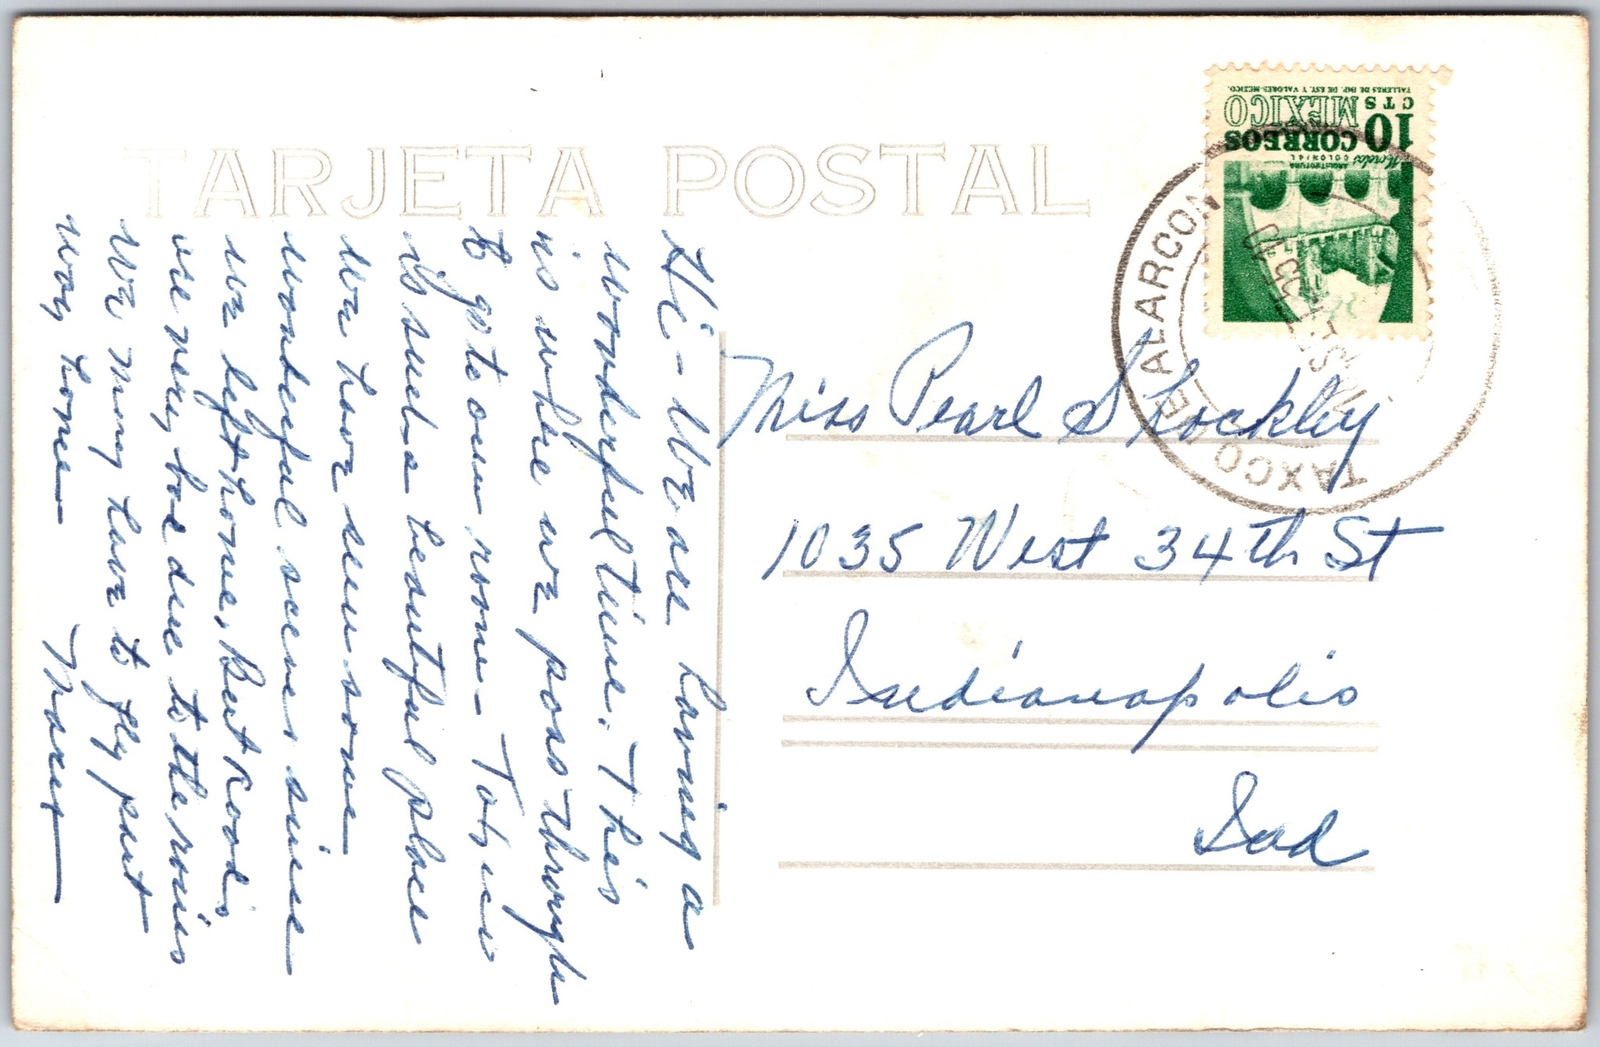 TARJETA POSTAL
10 CORREOS
CTS MEXICO
TALLERES DE IMP. DE EST. Y VALORES-MEXICO.
Morelos
ARQUITECTURA
COLONIAL
TAXCO DE ALARCON
Hi - We are having a
wonderful time. This
is where we pass through
to go to our room - Taxco
is such a beautiful place
We have seen some
wonderful scenes since
we left home, But roads
are very bad due to the rains
We may have to fly part
way home -
Miss Pearl Shockley
1035 West 34th St
Indianapolis
Ind